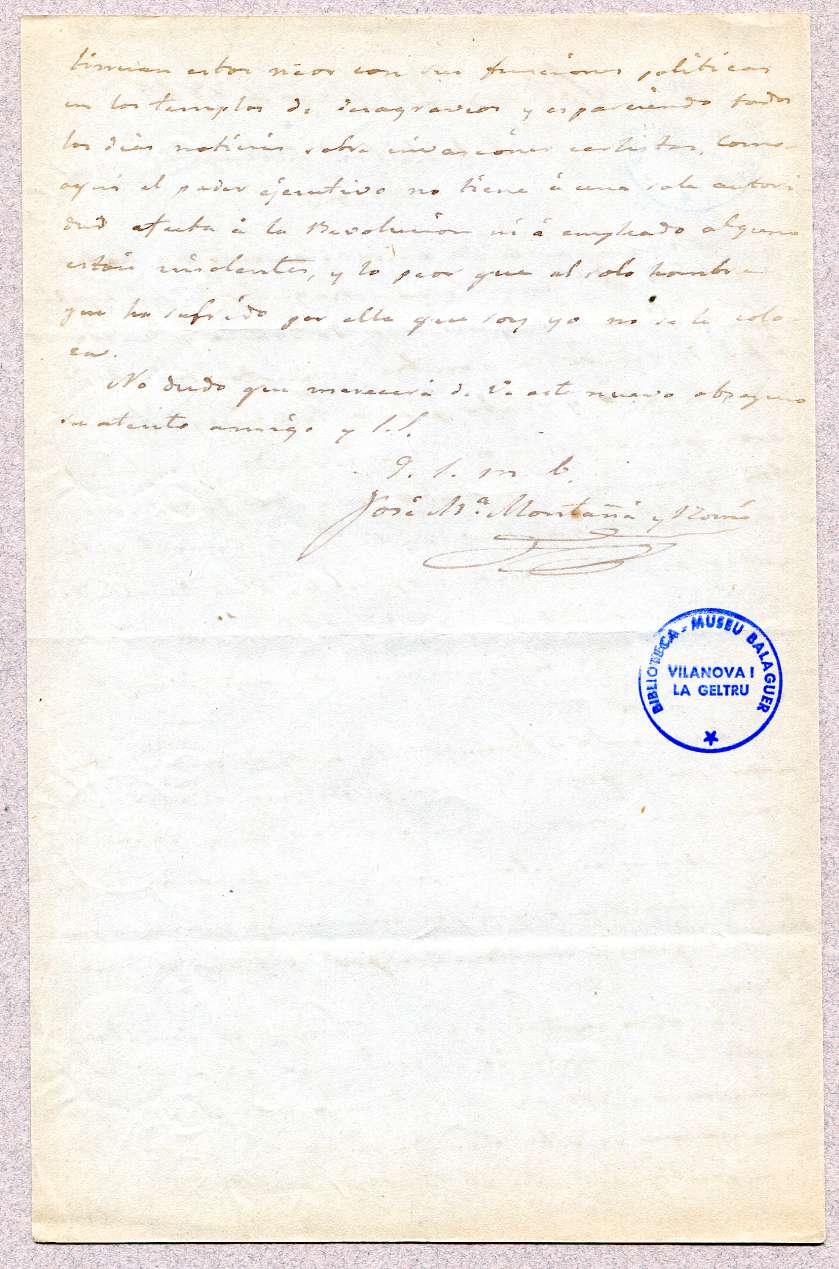 tinuan estos neos con sus funciones politicas
en los templos de desagravios y esparciendo todos
los dias noticias sobre invasiónes carlistas. Como
aqui el poder éjecutivo no tiene á una sola autori
dad afecta á la Revolución ni á empleado alguno
están insolentes, y lo peor que al solo hombre
que ha sufrido por ella que soy yo no se le colo
ca.
No dudo que merecerá de V. este nuevo obsequio
su atento amigo y S.S.
Q. S. M. B.
José Mª. Montañá y Romá
BIBLIOTECA - MUSEU BALAGUER
VILANOVA I
LA GELTRU